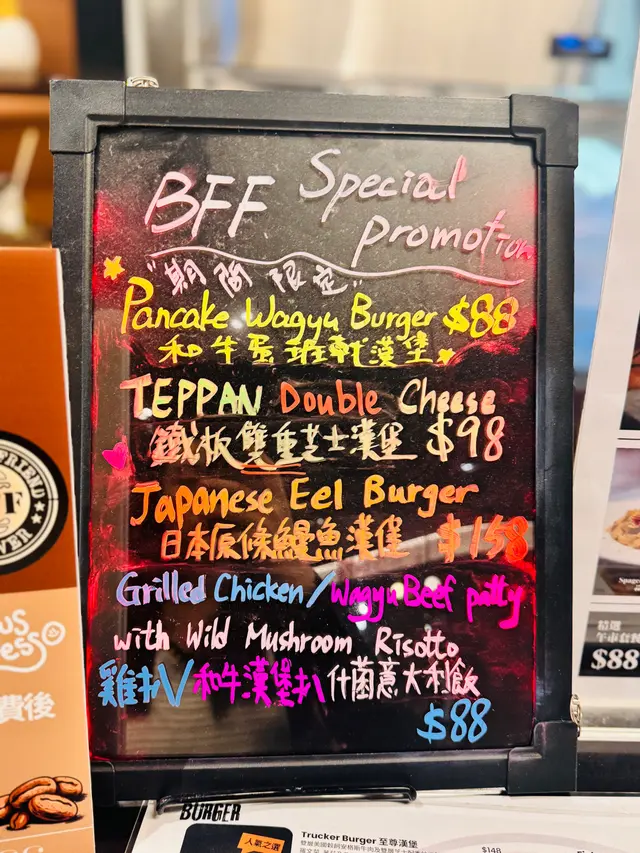 BFF Special
promotion
"期間限定"
Pancake Wagyu Burger $88
和牛蛋班戟漢堡
TEPPAN Double Cheese
鐵板雙重芝士漢堡 $98
Japanese Eel Burger
日本原條鰻魚漢堡 $158
Grilled Chicken/Wagyu Beef patty
with Wild Mushroom Risotto
雞扒/和牛漢堡扒什菌意大利飯
$88
費後
精選
午市套餐
$88
BURGER
人氣之選
Trucker Burger 至尊漢堡
$148